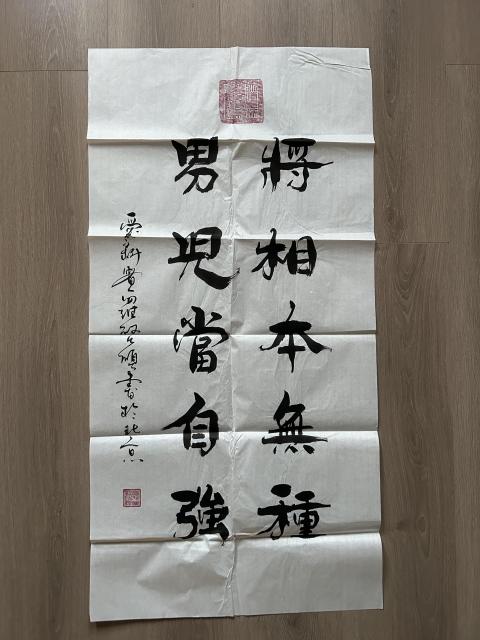 將相本無種
男兒當自強
愛新覺羅書於北京